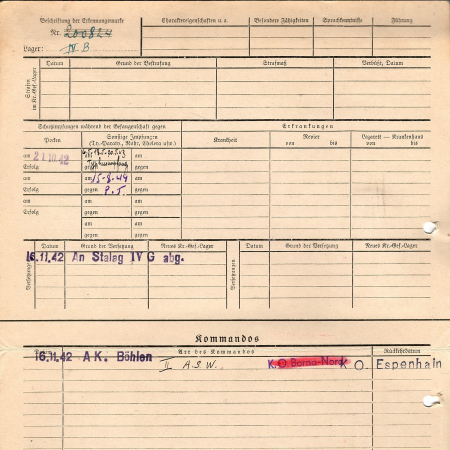 Beschriftung der Erkennungsmarke
Nr. 200824
Lager: IV B
Charaktereigenschaften u. a.
Besondere Fähigkeiten
Sprachkenntnisse
Führung
Strafen im Kr.-Gef.-Lager
Datum
Grund der Bestrafung
Strafmaß
Verbüßt, Datum
Schutzimpfungen während der Gefangenschaft gegen
Erkrankungen
Pocken
Sonstige Impfungen
(Ty.-Paraty., Ruhr, Cholera usw.)
Krankheit
Revier
von bis
Lazarett — Krankenhaus
von bis
am 21.10.42 am am
Erfolg gegen gegen
am am 15.8.44 am
Erfolg gegen P.T. gegen
am am am
Erfolg gegen gegen
am am am
Erfolg gegen gegen
Versetzungen
Datum
Grund der Versetzung
Neues Kr.-Gef.-Lager
Versetzungen
Datum
Grund der Versetzung
Neues Kr.-Gef.-Lager
16.11.42 An Stalag IV G abg.
Kommandos
Datum
Art des Kommandos
Rückkehrdatum
16.11.42 A K. Böhlen
II A.S.W.
K.O. Borna-Nord
K O. Espenhain